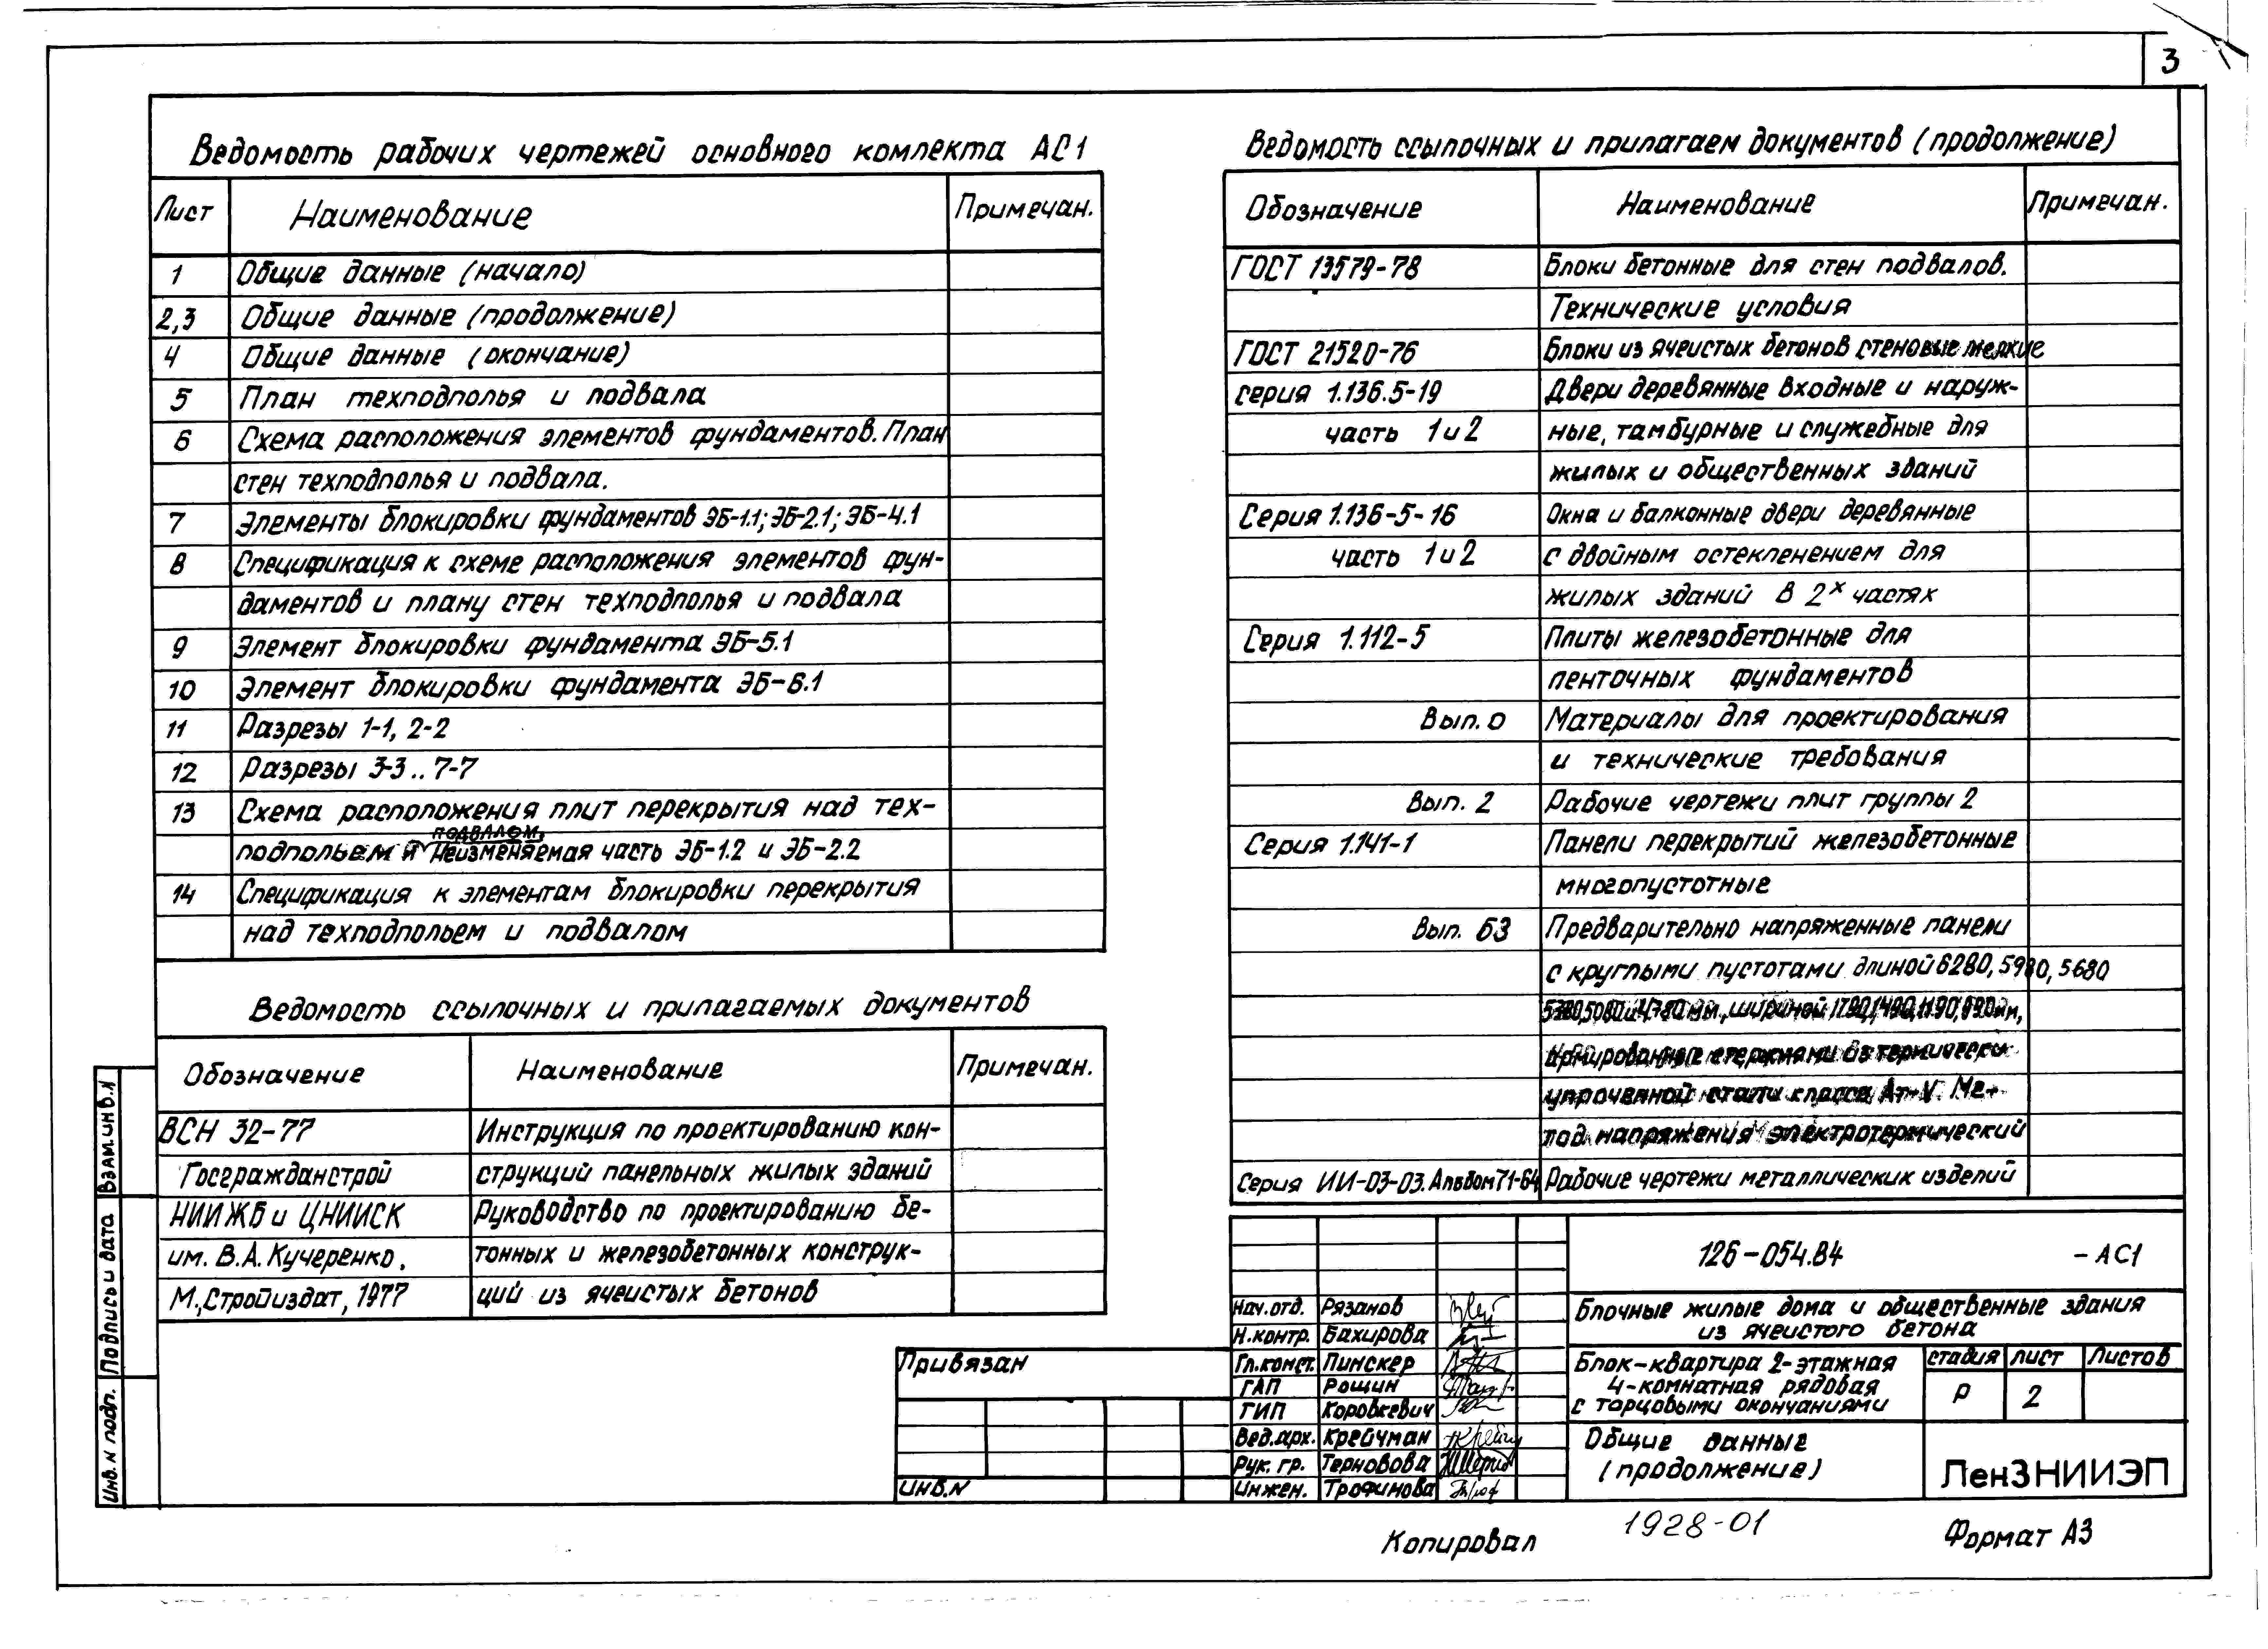 3
Ведомость рабочих чертежей основного комлекта АС1
Лист Наименование Примечан.
1 Общие данные (начало)
2,3 Общие данные (продолжение)
4 Общие данные (окончание)
5 План техподполья и подвала
6 Схема расположения элементов фундаментов. План
стен техподполья и подвала.
7 Элементы блокировки фундаментов ЭБ-1.1; ЭБ-2.1; ЭБ-4.1
8 Спецификация к схеме расположения элементов фун-
даментов и плану стен техподполья и подвала
9 Элемент блокировки фундамента ЭБ-5.1
10 Элемент блокировки фундамента ЭБ-6.1
11 Разрезы 1-1, 2-2
12 Разрезы 3-3..7-7
13 Схема расположения плит перекрытия над тех-
подвалом,
подпольем и неизменяемая часть ЭБ-1.2 и ЭБ-2.2
14 Спецификация к элементам блокировки перекрытия
над техподпольем и подвалом
Ведомость ссылочных и прилагаемых документов
Обозначение Наименование Примечан.
ВСН 32-77 Инструкция по проектированию кон-
Госгражданстрой струкций панельных жилых зданий
НИИЖБ и ЦНИИСК Руководство по проектированию бе-
им. В.А. Кучеренко, тонных и железобетонных конструк-
М., Стройиздат, 1977 ций из ячеистых бетонов
Ведомость ссылочных и прилагаем документов (продолжение)
Обозначение Наименование Примечан.
ГОСТ 13579-78 Блоки бетонные для стен подвалов.
Технические условия
ГОСТ 21520-76 Блоки из ячеистых бетонов стеновые мелкие
серия 1.136.5-19 Двери деревянные входные и наруж-
часть 1 и 2 ные, тамбурные и служебные для
жилых и общественных зданий
Серия 1.136-5-16 Окна и балконные двери деревянные
часть 1 и 2 с двойным остекленением для
жилых зданий в 2х частях
Серия 1.112-5 Плиты железобетонные для
ленточных фундаментов
Вып. 0 Материалы для проектирования
и технические требования
Вып. 2 Рабочие чертежи плит группы 2
Серия 1.141-1 Панели перекрытий железобетонные
многопустотные
Вып. 63 Предварительно напряженные панели
с круглыми пустотами длиной 6280, 5980, 5680
5380, 5080 и 4780 мм, шириной 1790, 1490, 1190, 990 мм,
армированные стержнями из термически
упроченной стали класса Ат-V. Ме-
тод напряжения электротермический
Серия ИИ-03-03. Альбом 71-64 Рабочие чертежи металлических изделий
126-054.84 -АС1
Блочные жилые дома и общественные здания
из ячеистого бетона
Нач.отд. Рязанов
Н.контр. Бахирова
Гл.конст. Пинскер
ГАП Рощин
ГИП Коровкевич
Вед.арх. Крейчман
Рук. гр. Терновова
Инжен. Трофимова
Блок-квартира 2-этажная
4-комнатная рядовая
с торцовыми окончаниями
стадия лист Листов
Р 2
Общие данные
(продолжение)
ЛенЗНИИЭП
Привязан
Инв.N
Взам.инв.N
Подпись и дата
Инв.N подл.
Копировал
1928-01
Формат А3